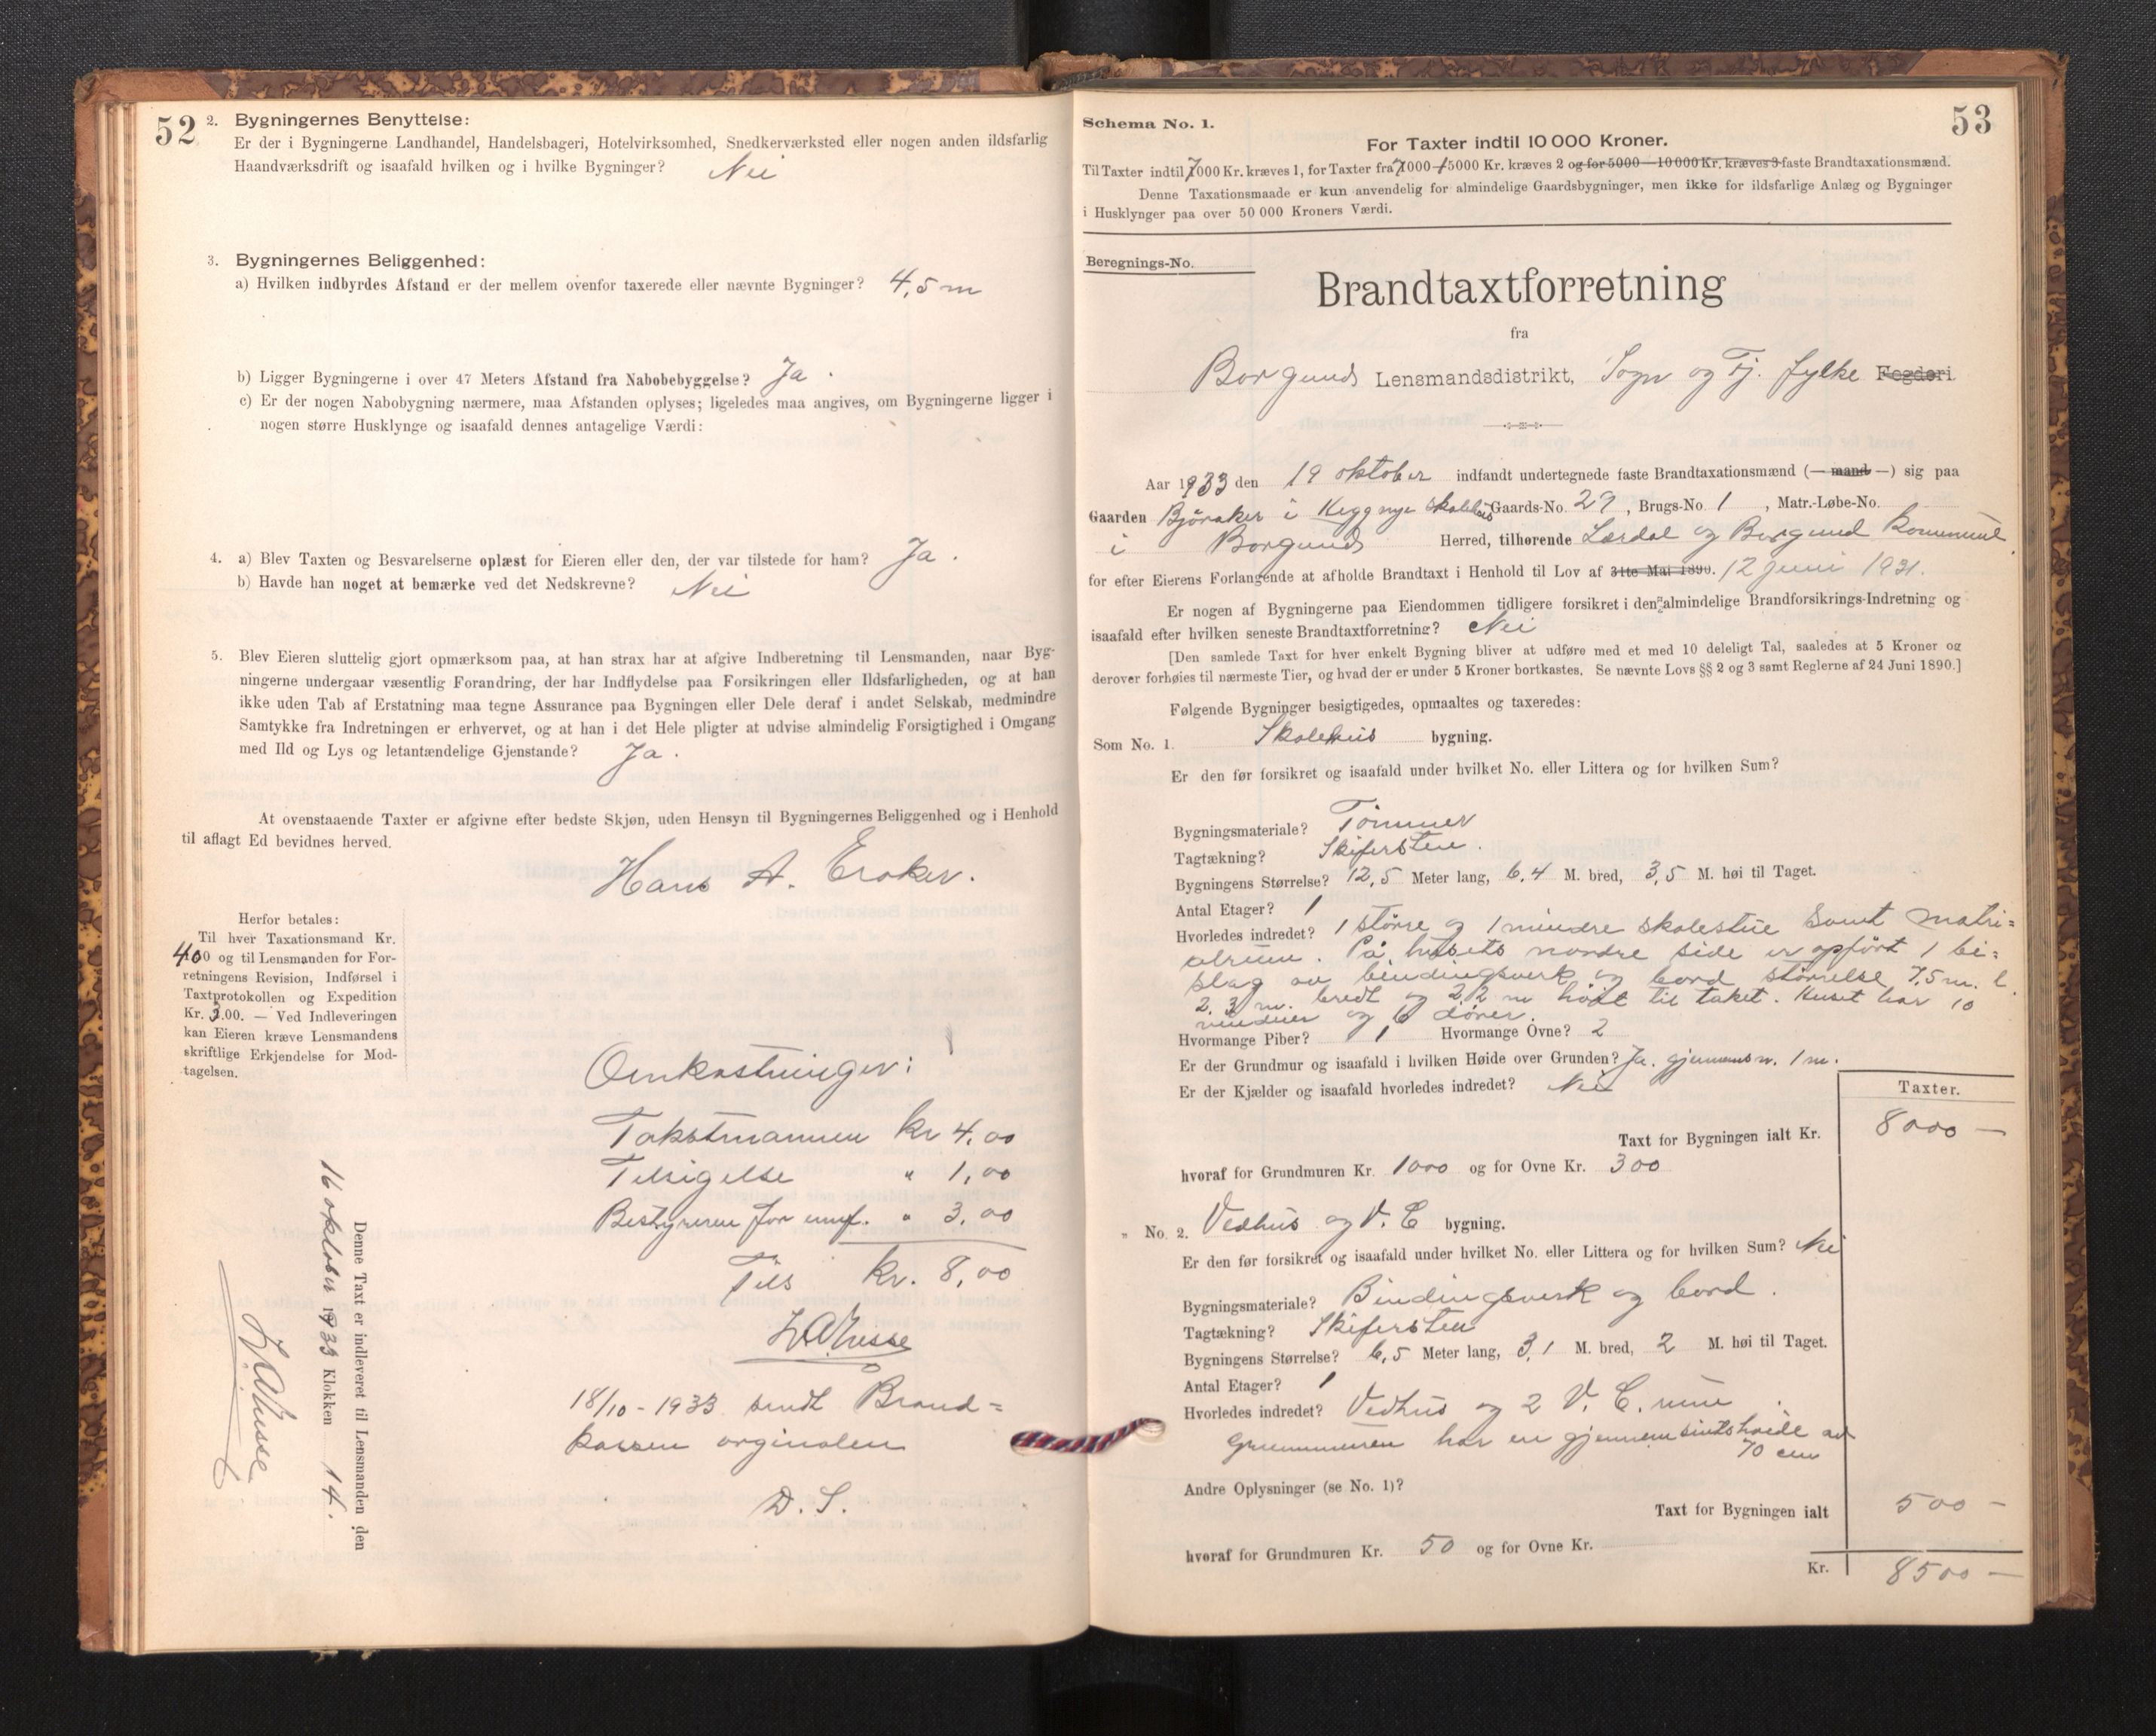 52
2. Bygningernes Benyttelse:
Er der i Bygningerne Landhandel, Handelsbageri, Hotelvirksomhed, Snedkerværksted eller nogen anden ildsfarlig
Haandværksdrift og isaafald hvilken og i hvilke Bygninger? Nei
3. Bygningernes Beliggenhed:
a) Hvilken indbyrdes Afstand er der mellem ovenfor taxerede eller nævnte Bygninger? 4,5 m
b) Ligger Bygningerne i over 47 Meters Afstand fra Nabobebyggelse? Ja.
c) Er der nogen Nabobygning nærmere, maa Afstanden oplyses; ligeledes maa angives, om Bygningerne ligger i
nogen større Husklynge og isaafald dennes antagelige Værdi:
4. a) Blev Taxten og Besvarelserne oplæst for Eieren eller den, der var tilstede for ham? Ja.
b) Havde han noget at bemærke ved det Nedskrevne? Nei
5. Blev Eieren sluttelig gjort opmærksom paa, at han strax har at afgive Indberetning til Lensmanden, naar Byg-
ningerne undergaar væsentlig Forandring, der har Indflydelse paa Forsikringen eller Ildsfarligheden, og at han
ikke uden Tab af Erstatning maa tegne Assurance paa Bygningen eller Dele deraf i andet Selskab, medmindre
Samtykke fra Indretningen er erhvervet, og at han i det Hele pligter at udvise almindelig Forsigtighed i Omgang
med Ild og Lys og letantændelige Gjenstande? Ja.
At ovenstaaende Taxter er afgivne efter bedste Skjøn, uden Hensyn til Bygningernes Beliggenhed og i Henhold
til aflagt Ed bevidnes herved.
Hans A. Eraker.
Herfor betales:
Til hver Taxationsmand Kr.
4.00 og til Lensmanden for For-
retningens Revision, Indførsel i
Taxtprotokollen og Expedition
Kr. 3.00. — Ved Indleveringen
kan Eieren kræve Lensmandens
skriftlige Erkjendelse for Mod-
tagelsen.
Omkostninger:
Takstmannen kr 4,00
Tilsigelse " 1,00
Bestyreren for innf. " 3,00
Tils kr. 8,00
18/10-1933 sendt Brand=
kassen orginalen
D. S.
Denne Taxt er indleveret til Lensmanden den
16 oktober 1933 Klokken 14.
53
Schema No. 1.
For Taxter indtil 10 000 Kroner.
Til Taxter indtil 7000 Kr. kræves 1, for Taxter fra 7000 - 15000 Kr. kræves 2 og for 5000—10 000 Kr. kræves 3 faste Brandtaxationsmænd.
Denne Taxationsmaade er kun anvendelig for almindelige Gaardsbygninger, men ikke for ildsfarlige Anlæg og Bygninger
i Husklynger paa over 50 000 Kroners Værdi.
Beregnings-No.
Brandtaxtforretning
fra
Borgund Lensmandsdistrikt, Sogn og Fj. fylke Fogderi
Aar 1933 den 19 oktober indfandt undertegnede faste Brandtaxationsmænd (— mand —) sig paa
Gaarden Bjøraker i nye skolehus Gaards-No. 29, Brugs-No. 1, Matr.-Løbe-No.
i Borgund Herred, tilhørende Lærdal og Borgund kommune.
for efter Eierens Forlangende at afholde Brandtaxt i Henhold til Lov af 31te Mai 1890. 12 juni 1931.
Er nogen af Bygningerne paa Eiendommen tidligere forsikret i den almindelige Brandforsikrings-Indretning og
isaafald efter hvilken seneste Brandtaxtforretning? Nei
[Den samlede Taxt for hver enkelt Bygning bliver at udføre med et med 10 deleligt Tal, saaledes at 5 Kroner og
derover forhøies til nærmeste Tier, og hvad der er under 5 Kroner bortkastes. Se nævnte Lovs §§ 2 og 3 samt Reglerne af 24 Juni 1890.]
Følgende Bygninger besigtigedes, opmaaltes og taxeredes:
Som No. 1. Skolehus bygning.
Er den før forsikret og isaafald under hvilket No. eller Littera og for hvilken Sum?
Bygningsmateriale? Tømmer
Tagtækning? Skifersten.
Bygningens Størrelse? 12,5 Meter lang, 6,4 M. bred, 3,5 M. høi til Taget.
Antal Etager? 1
Hvorledes indredet? 1 større og 1 mindre skolestue samt matri=
alrum. På husets nordre side er opført 1 bi=
slag av bindingsverk og bord størrelse 7,5 m. l.
2,3 m. bredt og 2,2 m høit til taket. Huset har 10
vinduer og 6 dører.
Hvormange Piber? 1 Hvormange Ovne? 2
Er der Grundmur og isaafald i hvilken Høide over Grunden? Ja. gjennemsn. 1 m.
Er der Kjælder og isaafald hvorledes indredet? Nei
Taxter.
Taxt for Bygningen ialt Kr. 8000 —
hvoraf for Grundmuren Kr. 1000 og for Ovne Kr. 300
" No. 2. Vedhus og V. C bygning.
Er den før forsikret og isaafald under hvilket No. eller Littera og for hvilken Sum? Nei
Bygningsmateriale? Bindingsverk og bord.
Tagtækning? Skifersten
Bygningens Størrelse? 6,5 Meter lang, 3,1 M. bred, 2 M. høi til Taget.
Antal Etager? 1
Hvorledes indredet? Vedhus og 2 V. C. rum.
Grunnmuren har en gjennemsnitshøide av
70 cm
Andre Oplysninger (se No. 1)?
Taxt for Bygningen ialt 500 —
hvoraf for Grundmuren Kr. 50 og for Ovne Kr.
Kr. 8500 —